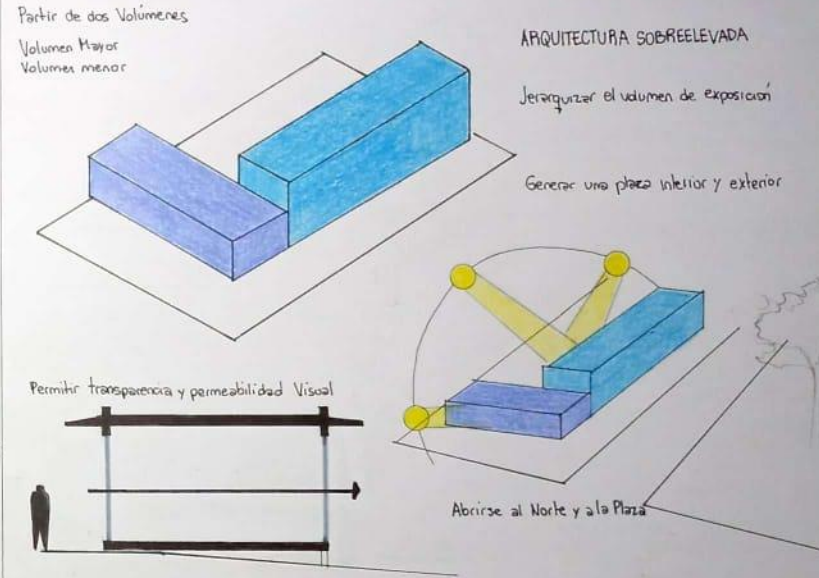 Partir de dos Volúmenes
Volumen Mayor
Volumen menor
ARQUITECTURA SOBREELEVADA
Jerarquizar el volumen de exposición
Generar una plaza interior y exterior
Permitir transparencia y permeabilidad Visual
Abrirse al Norte y a la Plaza